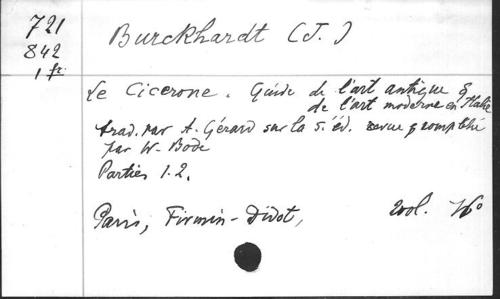 721
842
1 fr.
Burckhardt (J.)
Le Cicerone. Guide de l'art antique &
de l'art moderne en Italie
trad. par A. Gérard sur la 5. éd. revue & complété
par W. Bode
Parties 1.2.
Paris, Firmin-Didot, 2 vol. 16°